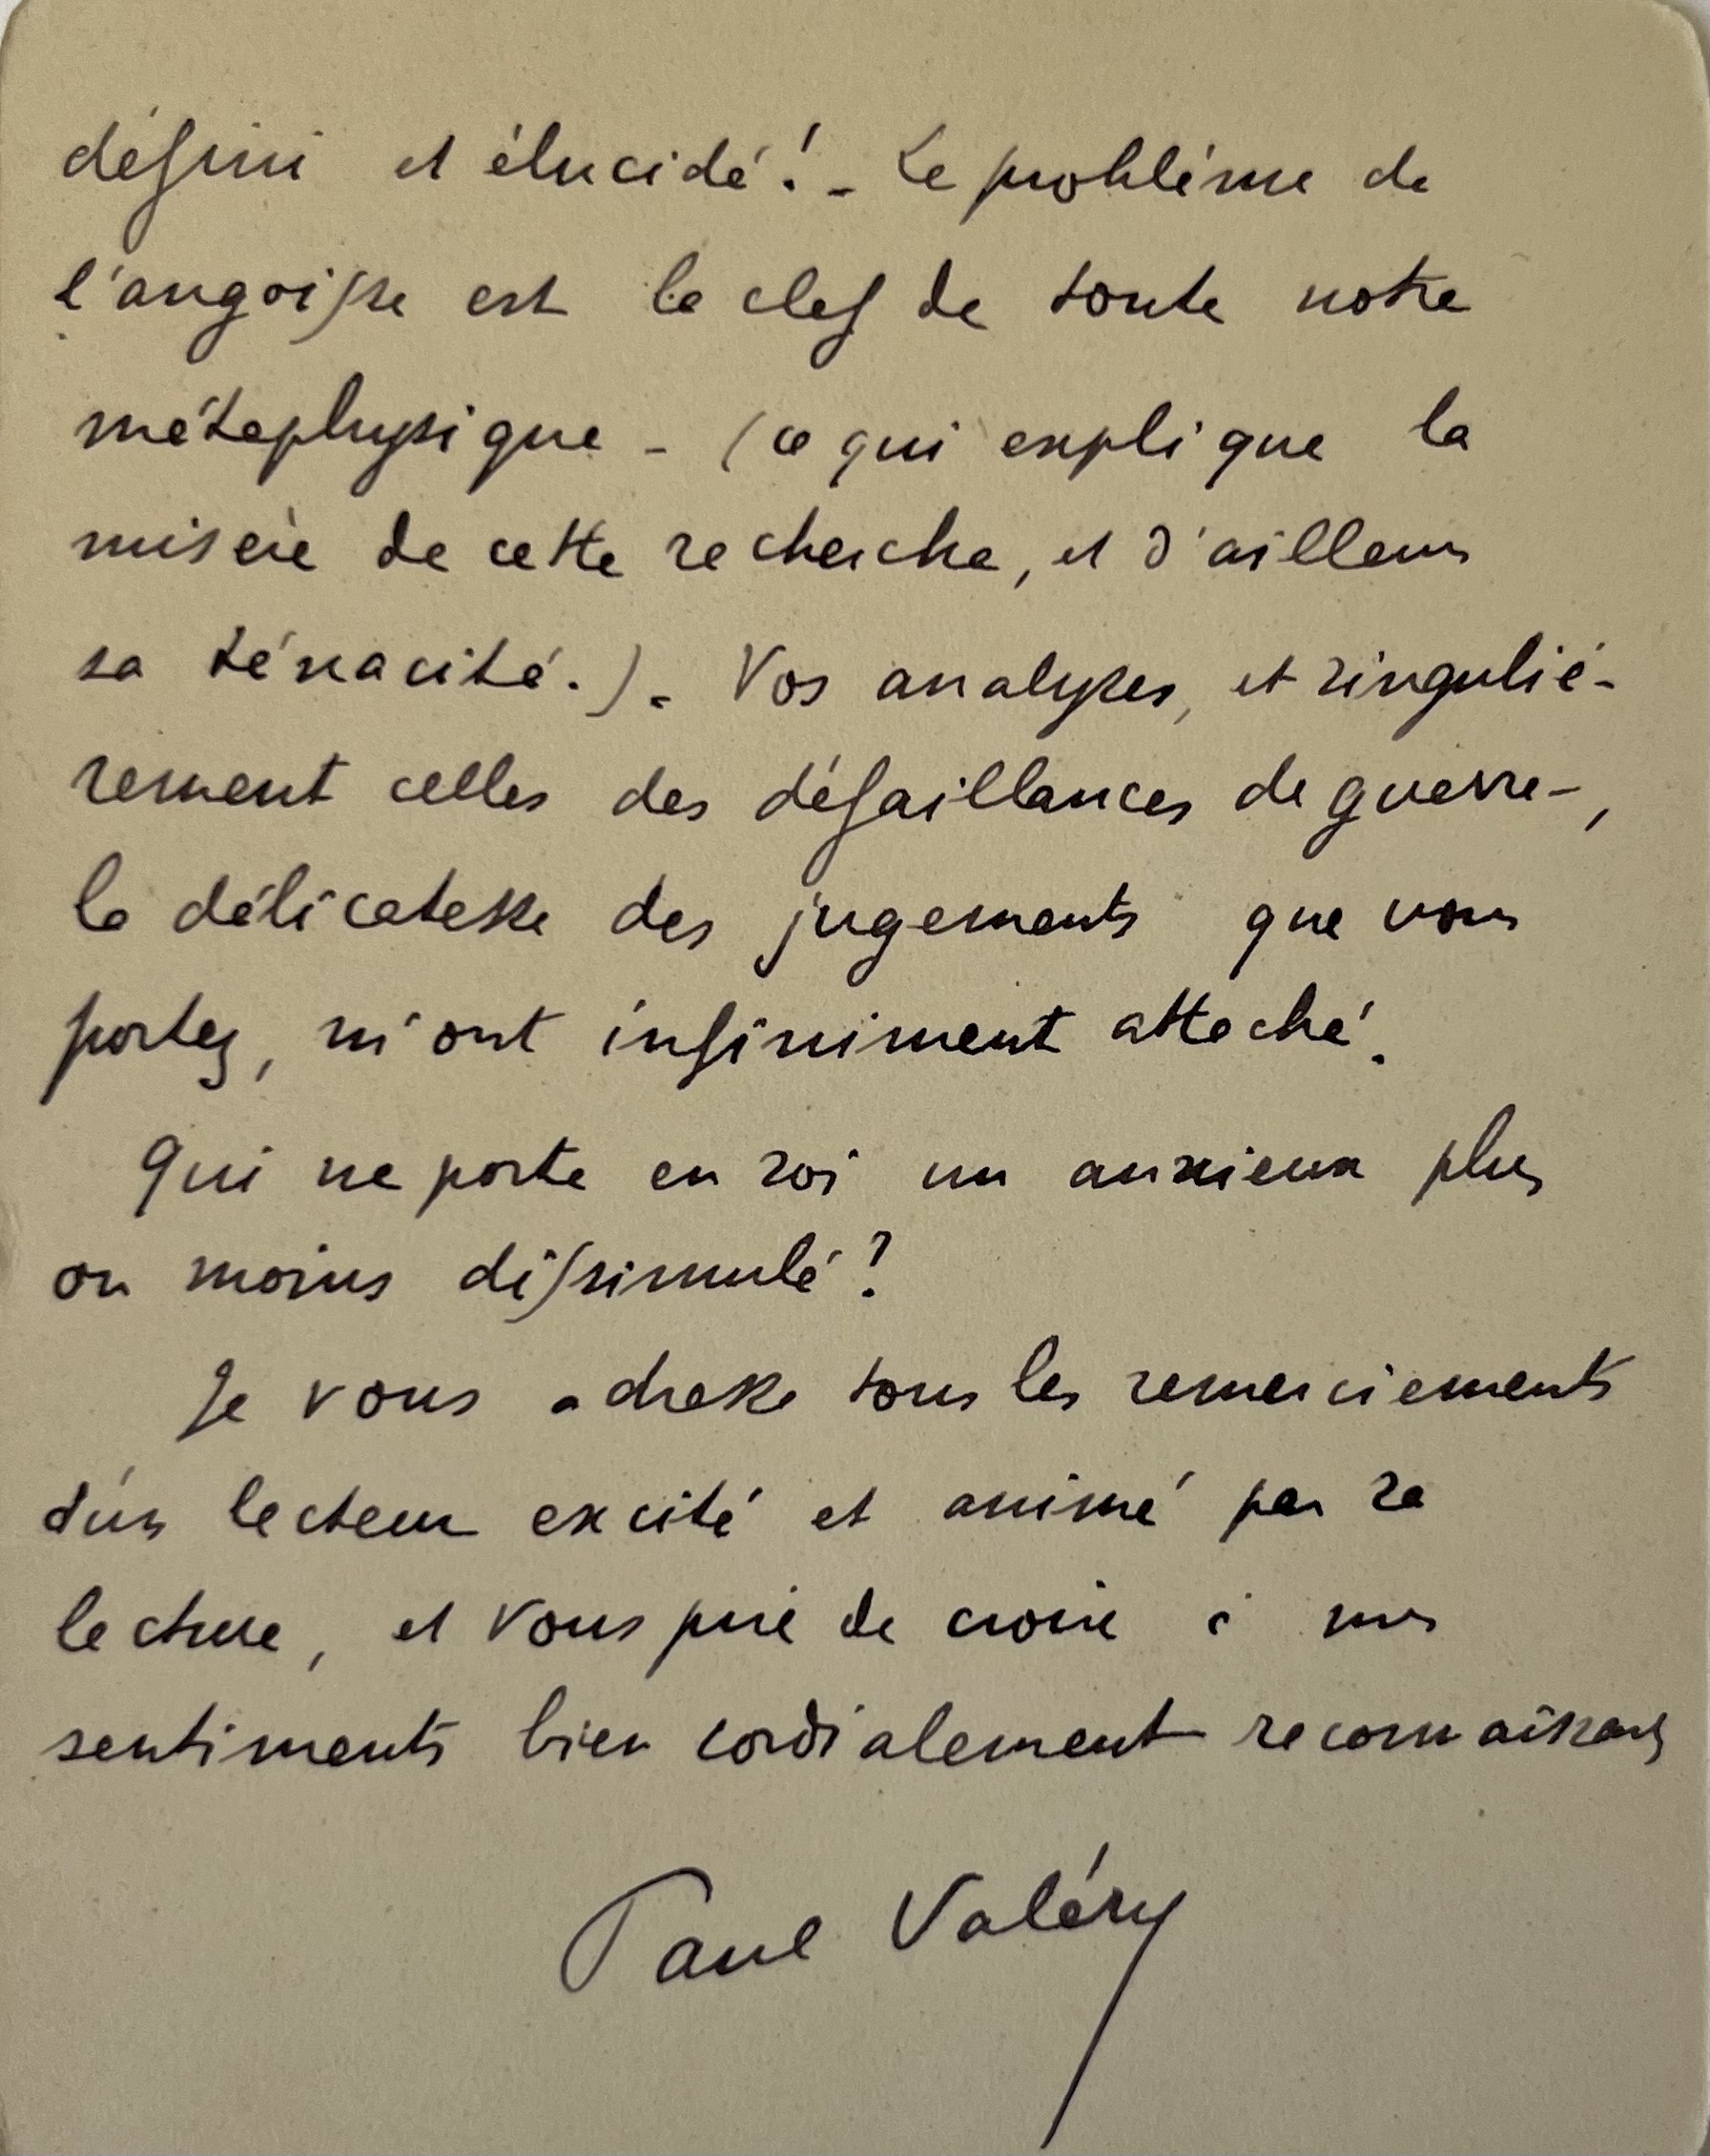 défini et élucidé! - Le problème de
l'angoisse est la clef de toute notre
métaphysique - (ce qui explique la
misère de cette recherche, et d'ailleurs
sa ténacité.). Vos analyses, et singuliè-
rement celles des défaillances de guerre-,
la délicatesse des jugements que vous
portez, m'ont infiniment attaché.
Qui ne porte en soi un anxieux plus
ou moins dissimulé?
Je vous adresse tous les remerciements
d'un lecteur excité et animé par sa
lecture, et vous prie de croire à mes
sentiments bien cordialement reconnaissants
Paul Valéry